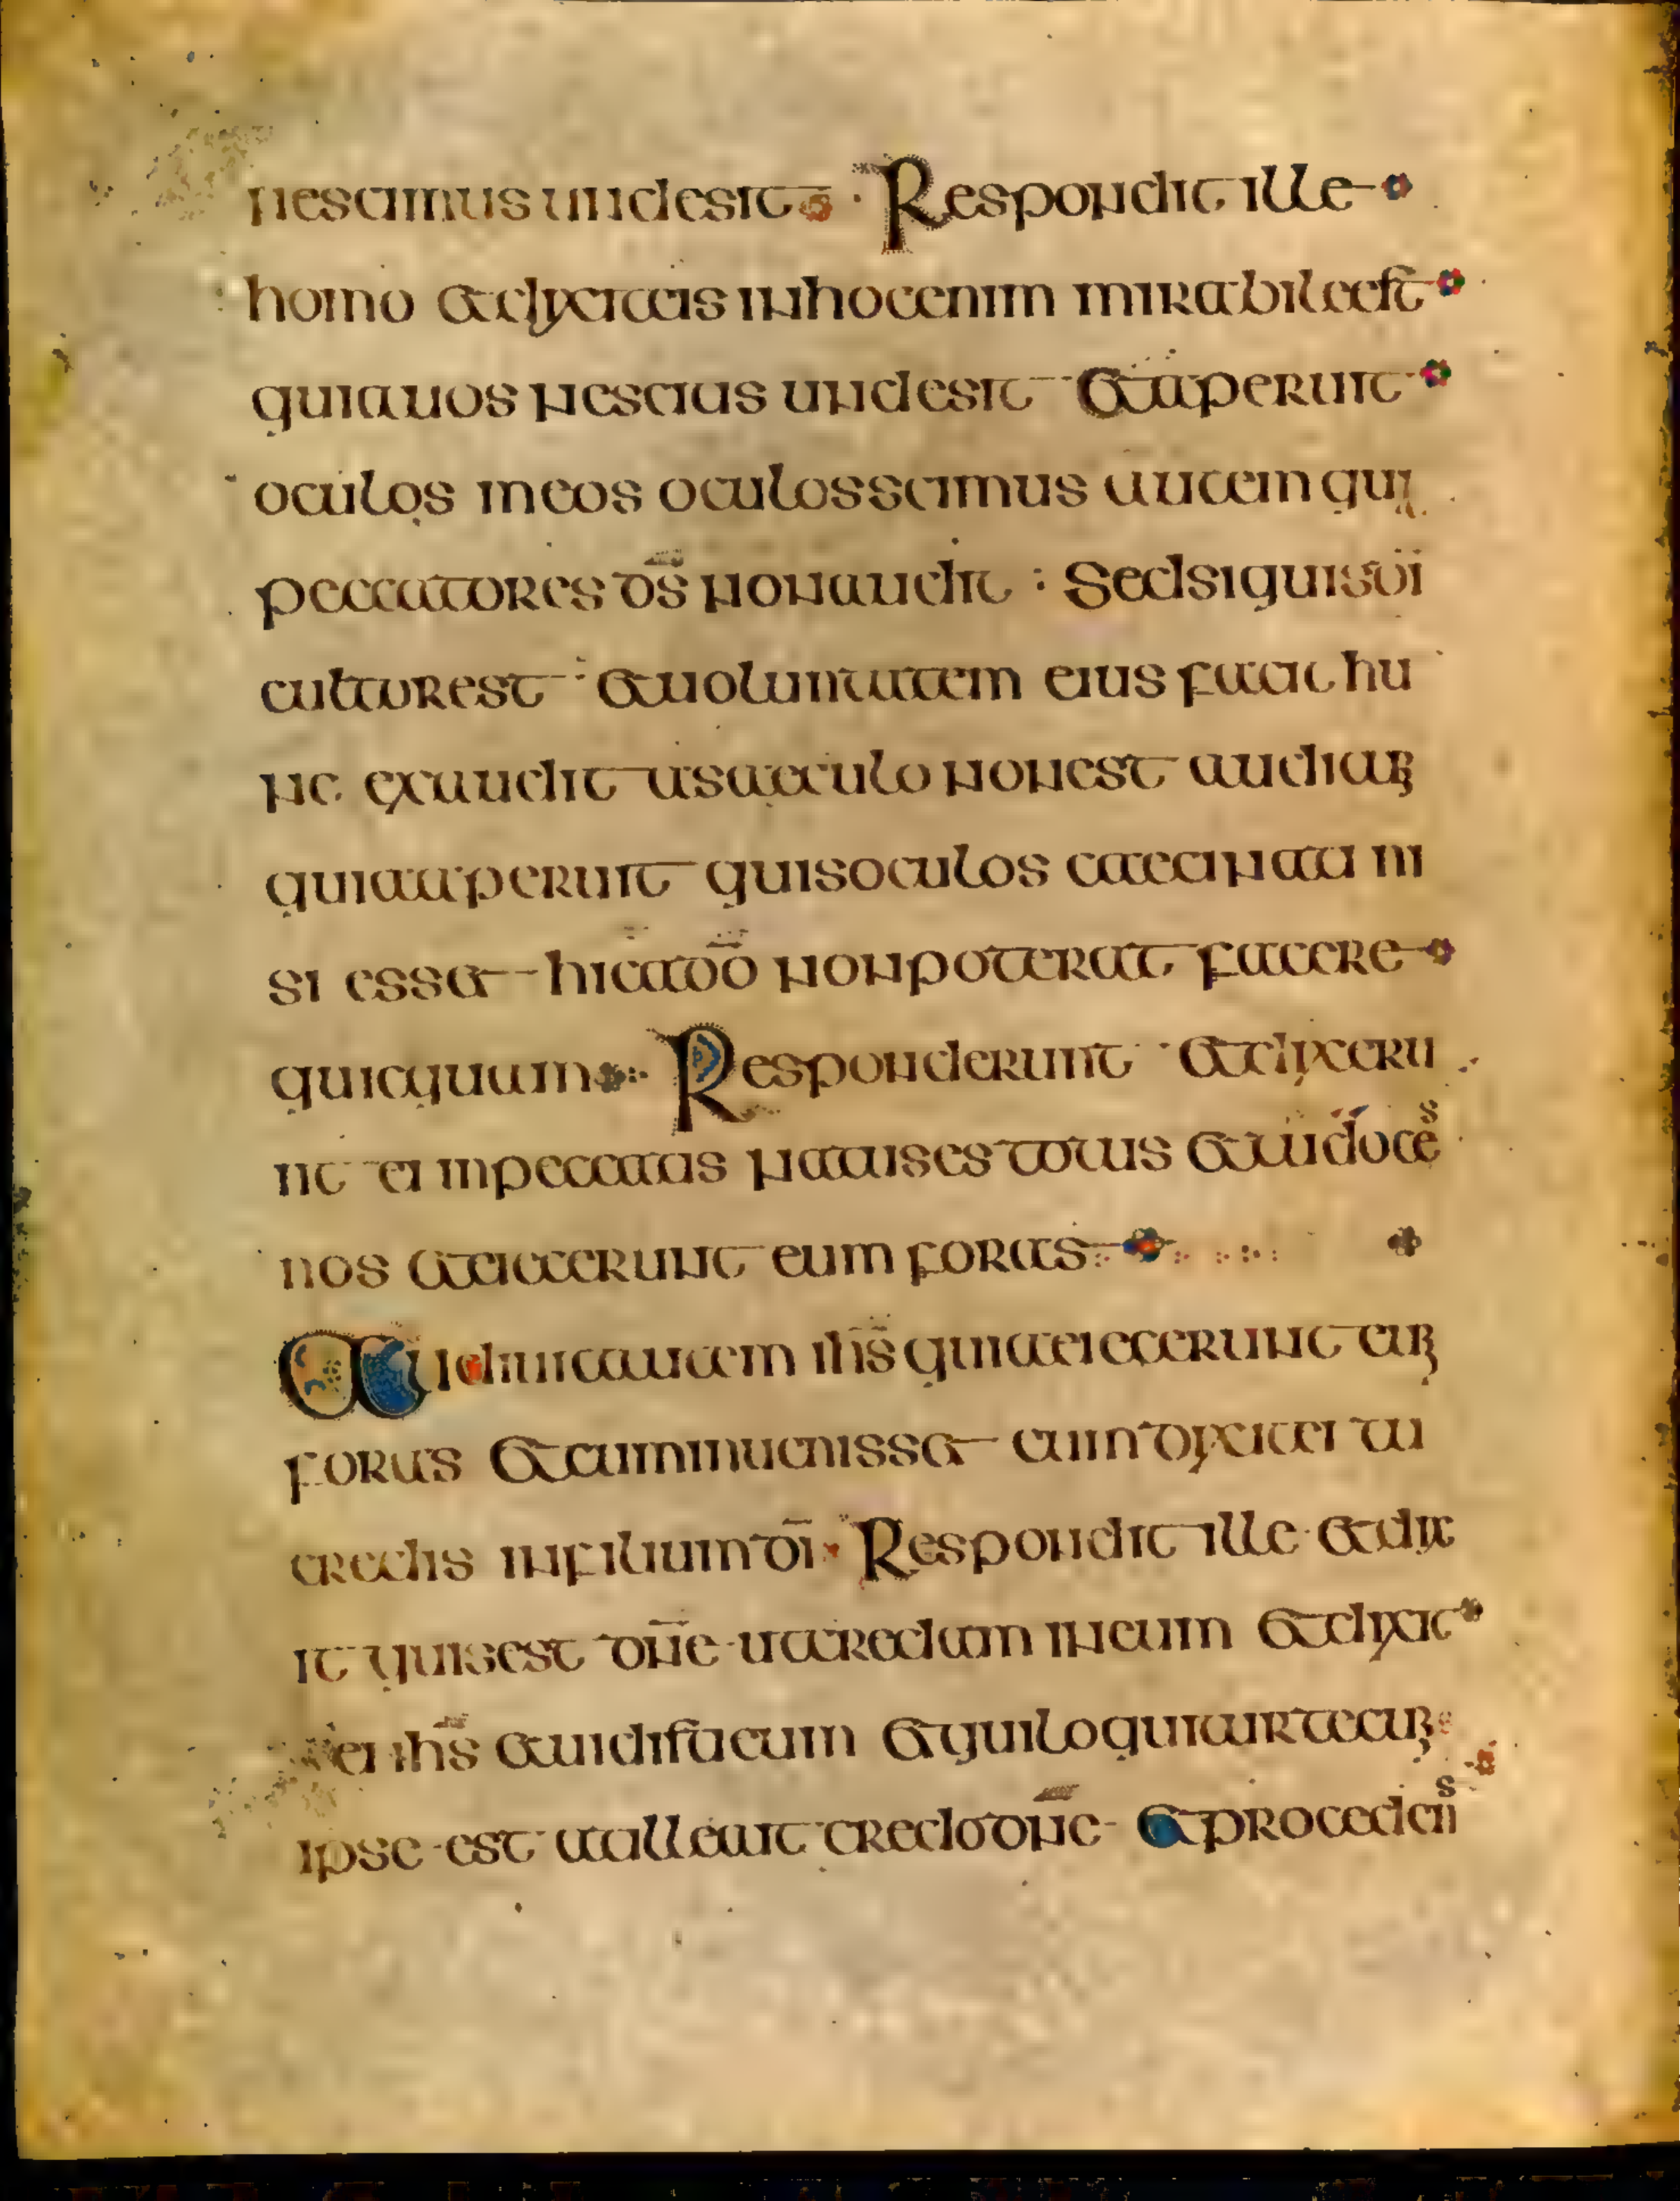 nescimus unde sit · Respondit ille
homo et dixit eis in hoc enim mirabile est
quia uos nescius unde sit et aperuit
oculos meos oculos scimus autem qui
peccatores d̄s non audit : Sed si quis d̄i
cultor est · et uoluntatem eius facit hu
nc exaudit a saeculo non est auditum
quia aperuit quis oculos caeci nati ni
si esset hic a d̄ō non poterat facere
quicquam Responderunt · et dixeru
nt ei in peccatis natus es totus et tu doces
nos et eiecerunt eum foras
Audiuit autem ih̄s quia eiecerunt eum
foras et cum inuenisset eum dixit ei tu
credis in filium d̄ī · Respondit ille · et dix
it quis est dn̄e · ut credam in eum et dixit
ei ih̄s et uidisti eum et qui loquitur tecum
ipse · est at ille ait credo dn̄e · et procedens